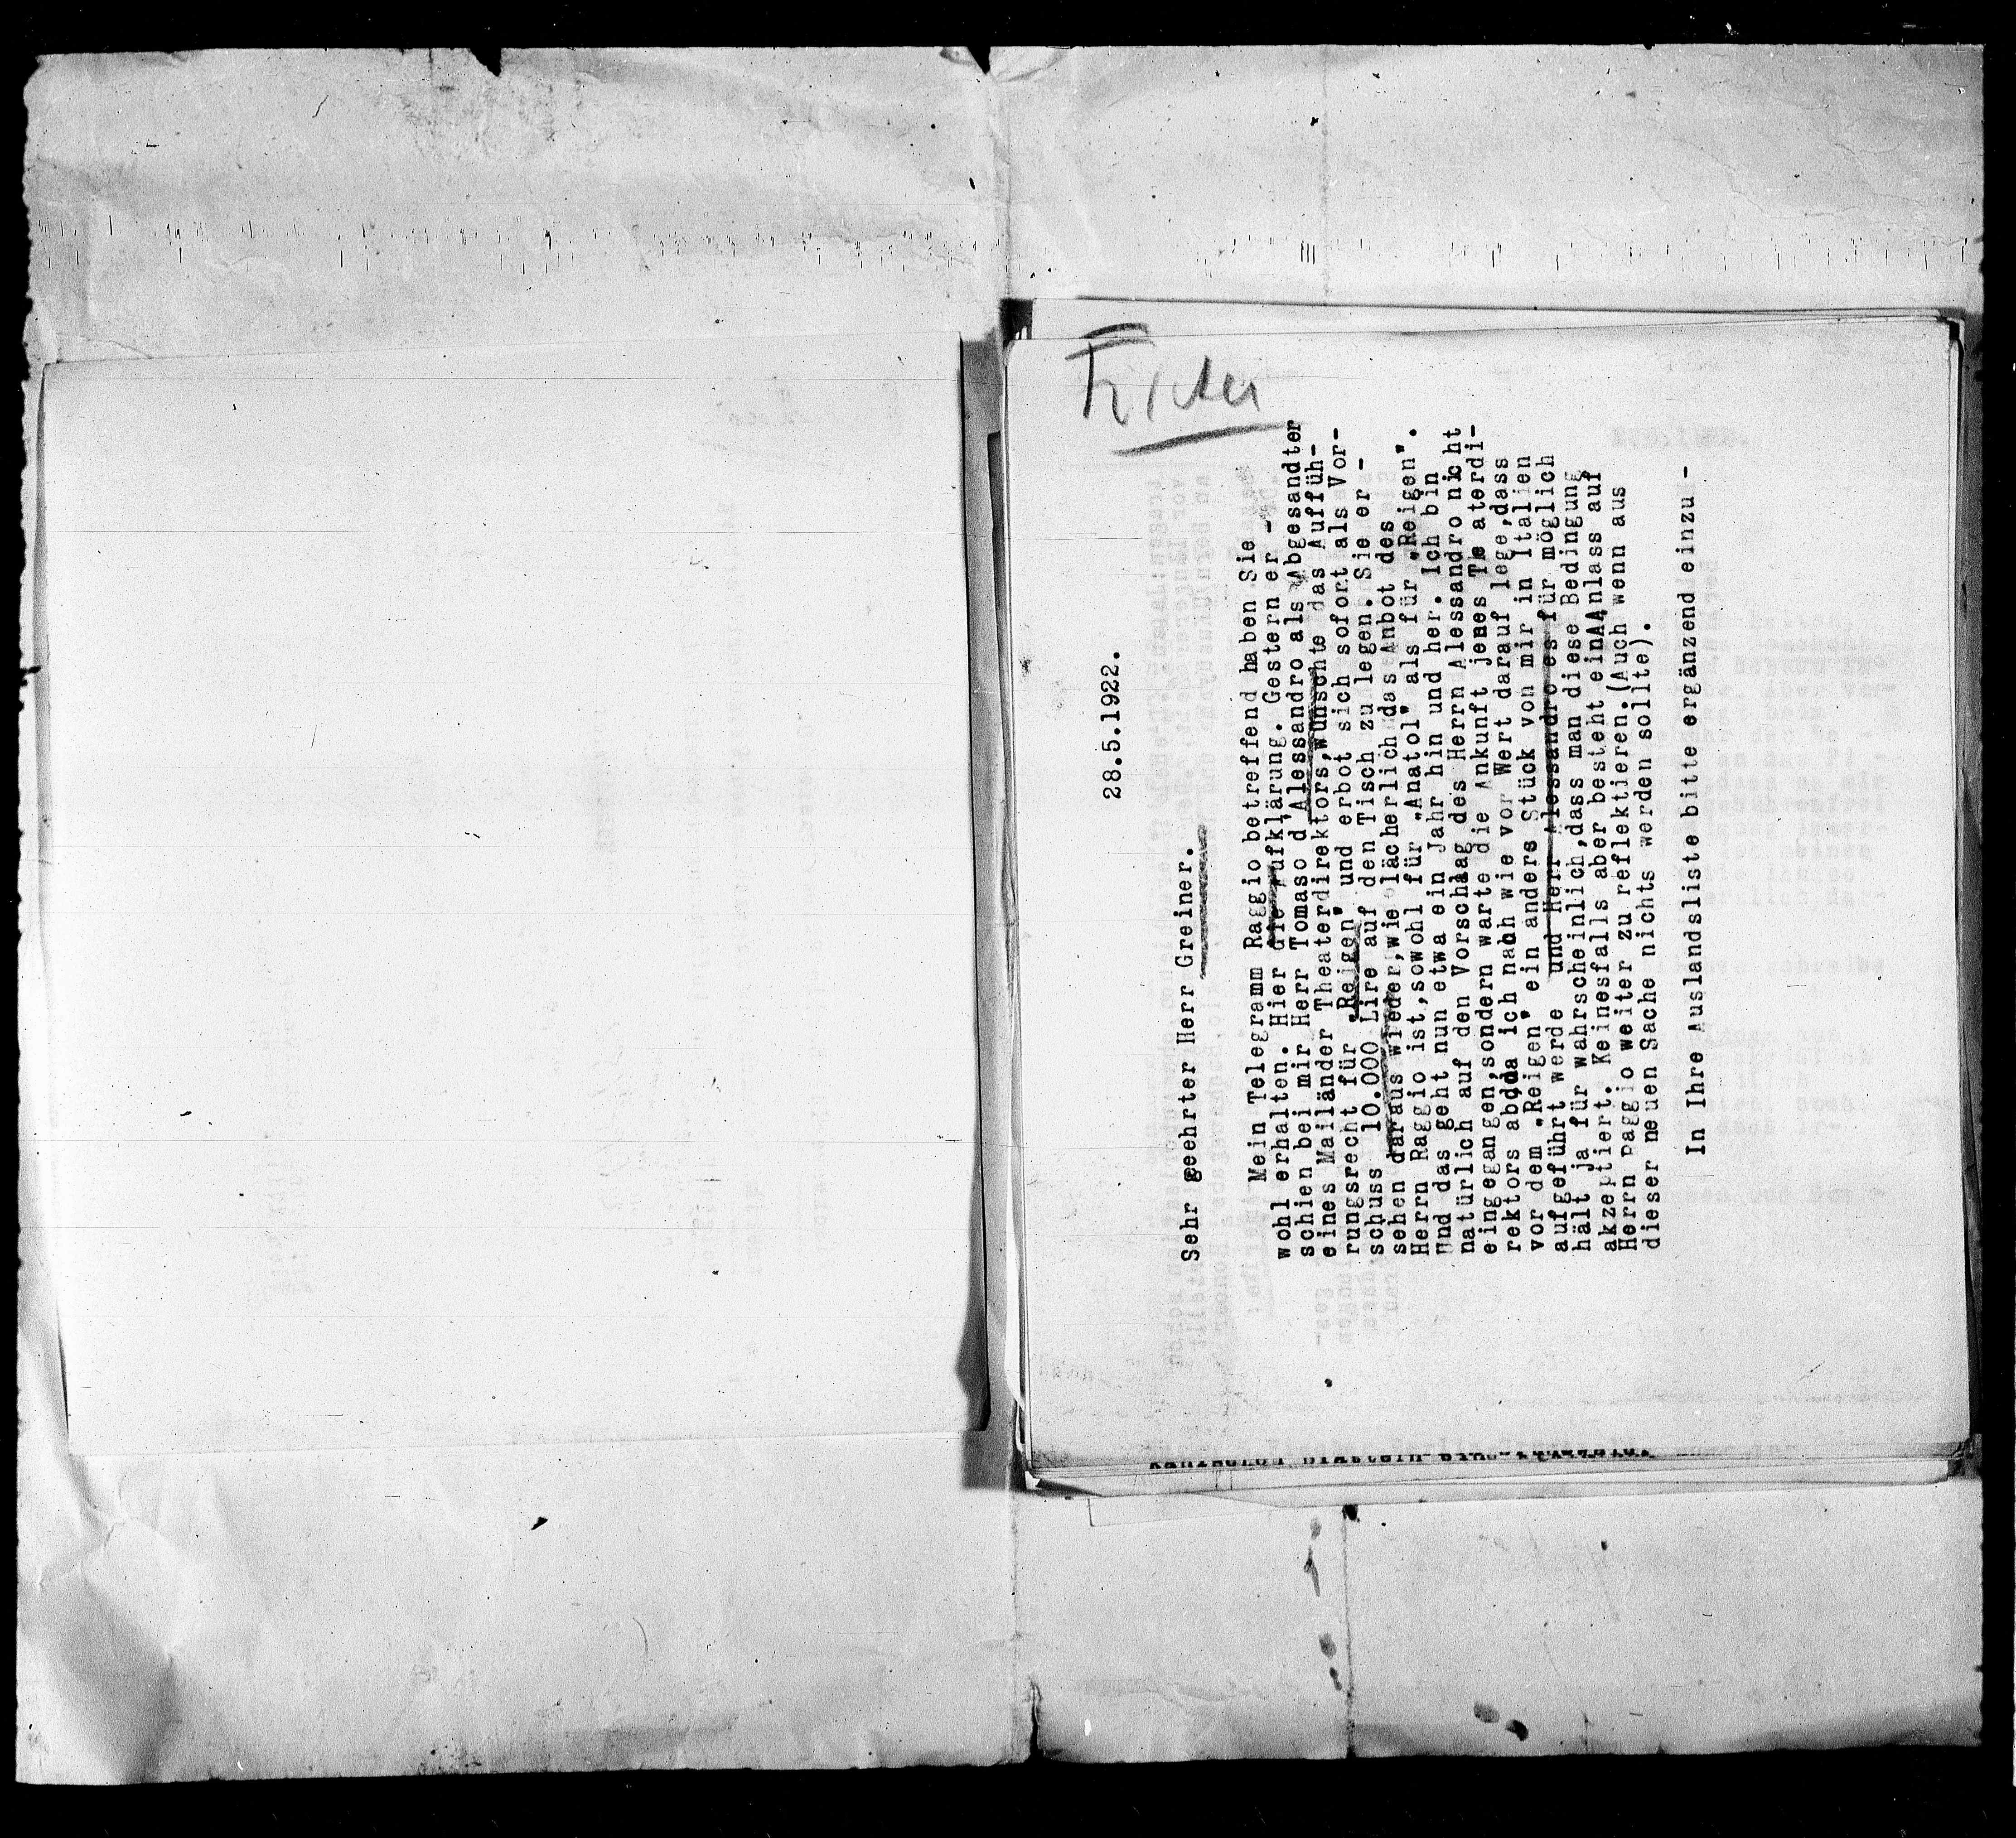 28.5.1922.
Sehr geehrter Herr Greiner.
Mein Telegramm Raggio betreffend haben Sie
wohl erhalten. Hier die Aufklärung. Gestern er -
schien bei mir Herr Tomaso d'Alessandro als Abgesandter
eines Mailänder Theaterdirektors,wünschte das Auffüh-
rungsrecht für „Reigen" und erbot sich sofort als Vor-
schuss 10.000 Lire auf den Tisch zu legen. Sie er -
sehen daraus wieder,wie lächerlich das Anbot des
Herrn Raggio ist,sowohl für „Anatol" als für „Reigen".
Und das geht nun etwa ein Jahr hin und her. Ich bin
natürlich auf den Vorschlag des Herrn Alessandro nicht
eingegangen,sondern warte die Ankunft jenes Theaterdi-
rektors ab,da ich nach wie vor Wert darauf lege,dass
vor dem „Reigen" ein anders Stück von mir in Italien
aufgeführt werde und Herr Alessandro es für möglich
hält ja für wahrscheinlich,dass man diese Bedingung
akzeptiert. Keinesfalls aber besteht ein Anlass auf
Herrn Raggio weiter zu reflektieren.(Auch wenn aus
dieser neuen Sache nichts werden sollte).
In Ihre Auslandsliste bitte ergänzend einzu -